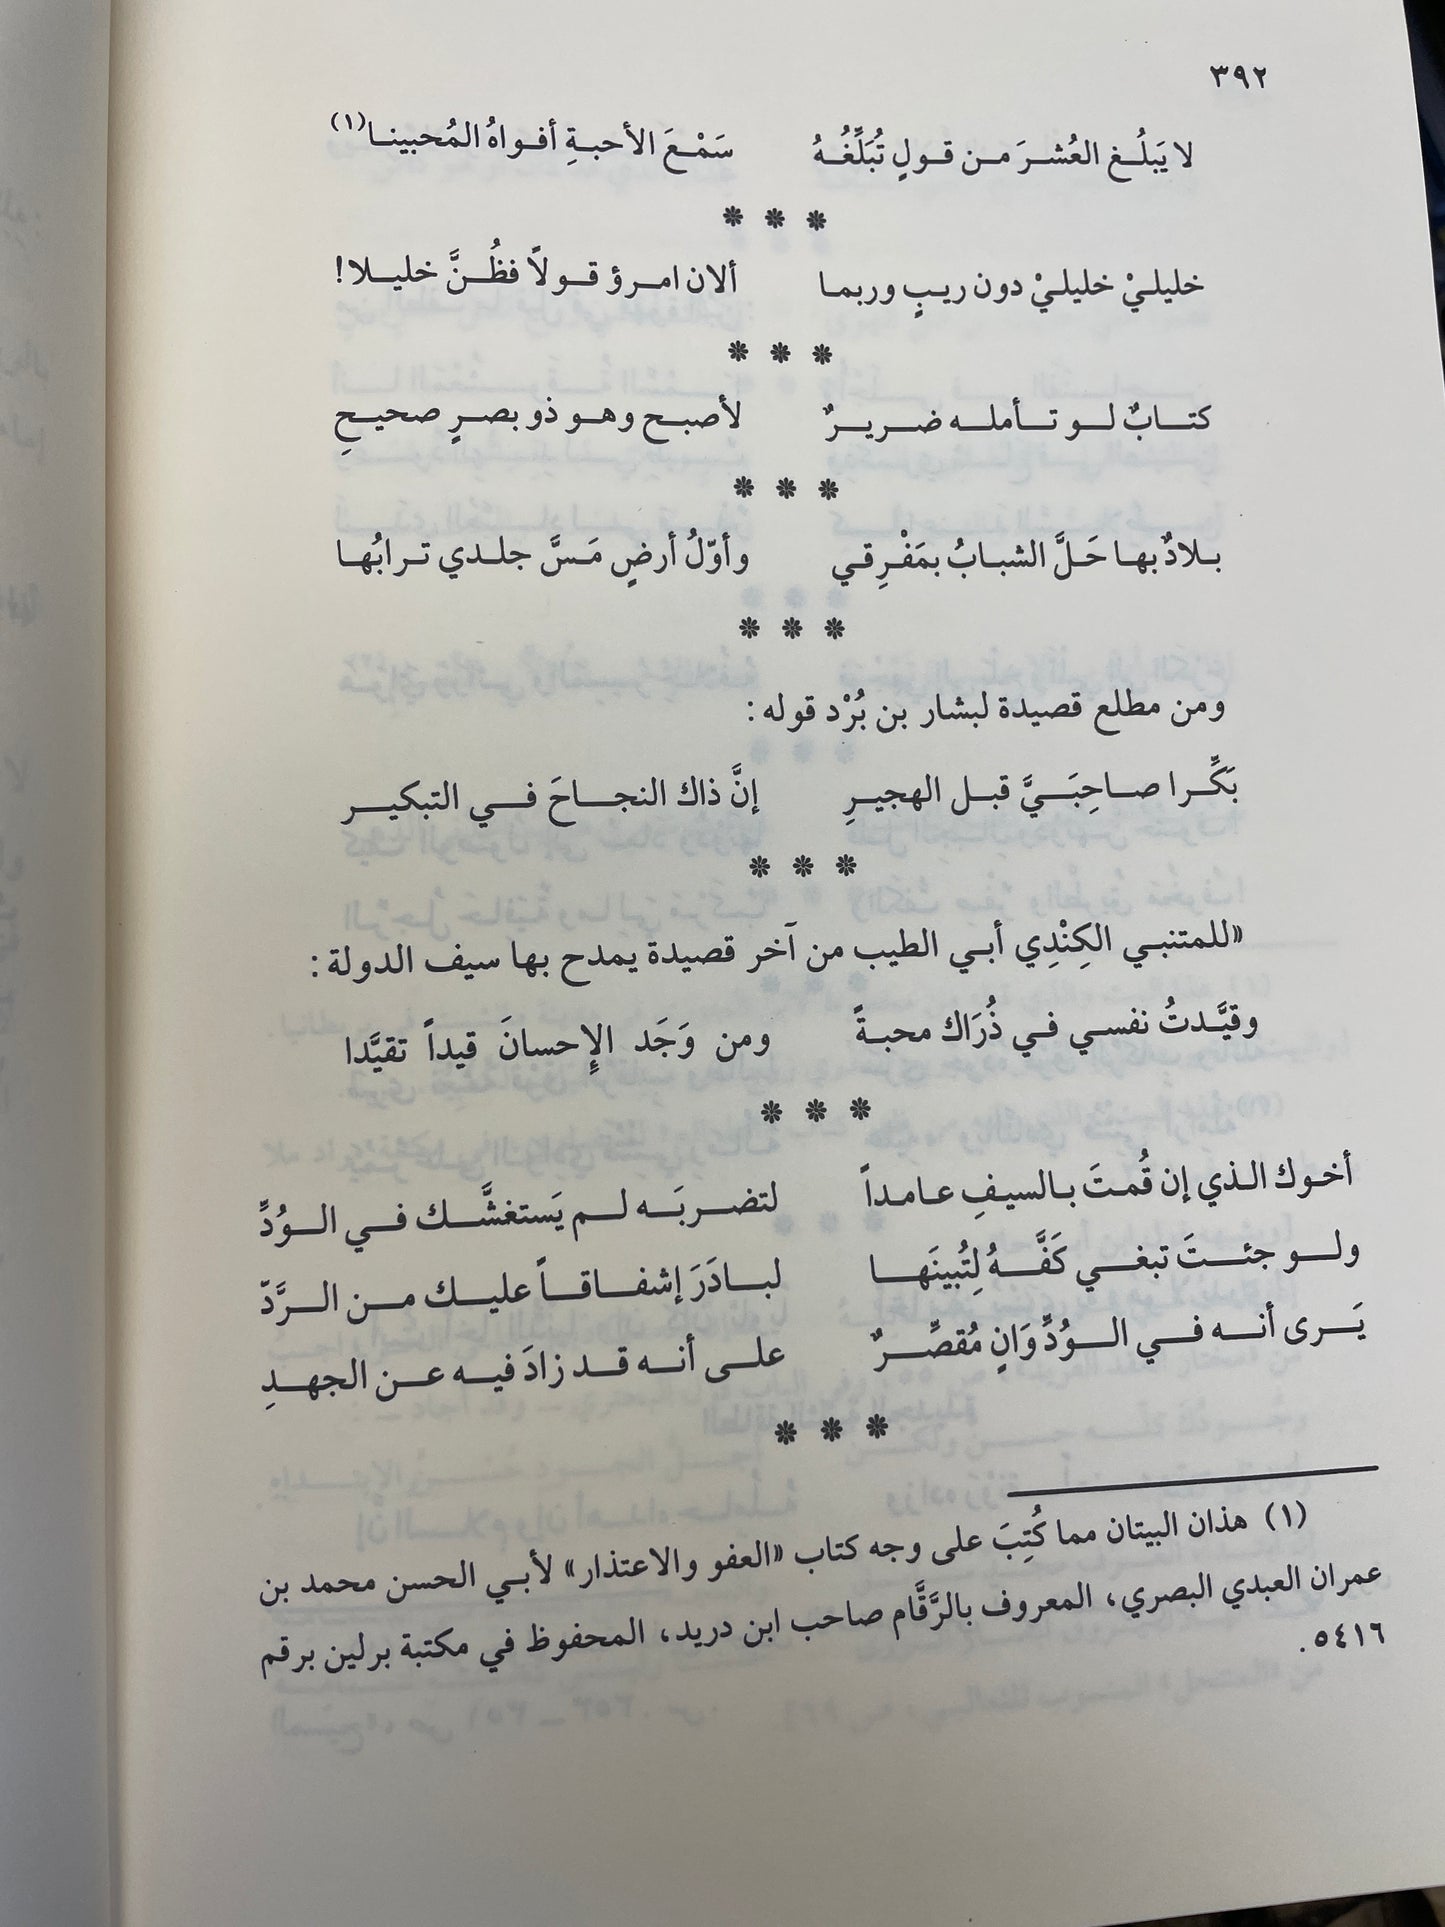 ٣٩٢
لا يَبلُغ العُشرَ من قولٍ تُبَلِّغُهُ سَمْعَ الأحبةِ أفواهُ المُحبينا(١)
* * *
خليليْ خليليْ دون ريبٍ وربما ألان امرؤ قولاً فظُنَّ خليلا!
* * *
كتابٌ لو تأمله ضريرٌ لأصبح وهو ذو بصرٍ صحيحِ
* * *
بلادٌ بها حَلَّ الشبابُ بمَفْرِقي وأوّلُ أرضٍ مَسَّ جلدي ترابُها
* * *
ومن مطلع قصيدة لبشار بن بُرْد قوله:
بَكِّرا صاحِبَيَّ قبل الهجيرِ إنَّ ذاك النجاحَ في التبكير
* * *
«للمتنبي الكِنْدِي أبي الطيب من آخر قصيدة يمدح بها سيف الدولة:
وقيَّدتُ نفسي في ذُرَاك محبةً ومن وَجَد الإِحسانَ قيداً تقيَّدا
* * *
أخوك الذي إن قُمتَ بالسيفِ عامداً لتضربَه لم يَستغشَّك في الوُدِّ
ولو جئتَ تبغي كَفَّهُ لِتُبينَها لبادَرَ إشفاقاً عليك من الرَّدّ
يَرى أنه في الوُدِّ وَانٍ مُقصِّرٌ على أنه قد زادَ فيه عن الجهدِ
* * *
(١) هذان البيتان مما كُتِبَ على وجه كتاب «العفو والاعتذار» لأبي الحسن محمد بن
عمران العبدي البصري، المعروف بالرَّقَّام صاحب ابن دريد، المحفوظ في مكتبة برلين برقم
٥٤١٦.